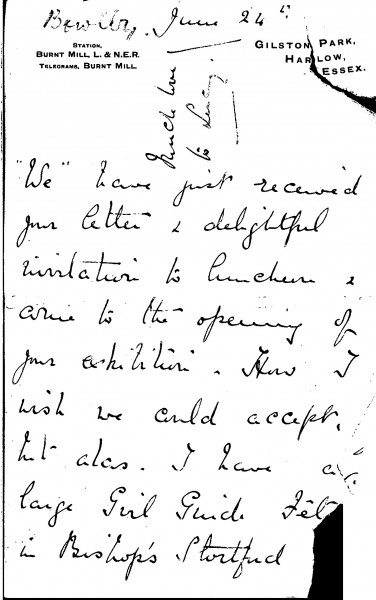 June 24th
STATION,
BURNT MILL, L. & N.E.R.
TELEGRAMS, BURNT MILL.
GILSTON PARK,
HARLOW,
ESSEX.
Much love
to
"We" have just received
your letter & delightful
invitation to luncheon &
come to the opening of
your exhibition. How I
wish we could accept,
but alas. I have a
large Girl Guide Fêt
in Bishop's Stortford